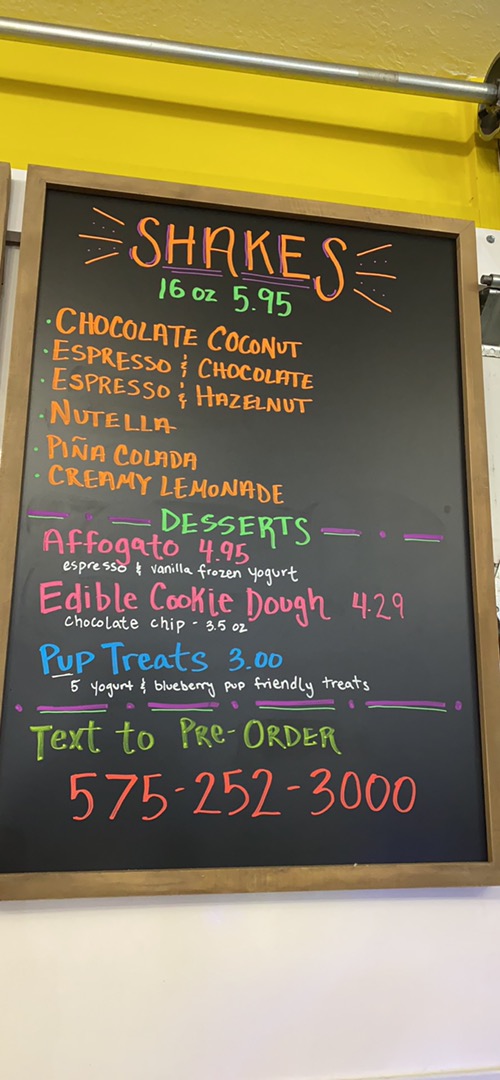 SHAKES
16 oz 5.95
· CHOCOLATE COCONUT
· ESPRESSO & CHOCOLATE
· ESPRESSO & HAZELNUT
· NUTELLA
· PIÑA COLADA
· CREAMY LEMONADE
DESSERTS
Affogato 4.95
espresso & vanilla frozen yogurt
Edible Cookie Dough 4.29
chocolate chip - 3.5 oz
Pup Treats 3.00
5 yogurt & blueberry pup friendly treats
Text to PRE-ORDER
575-252-3000